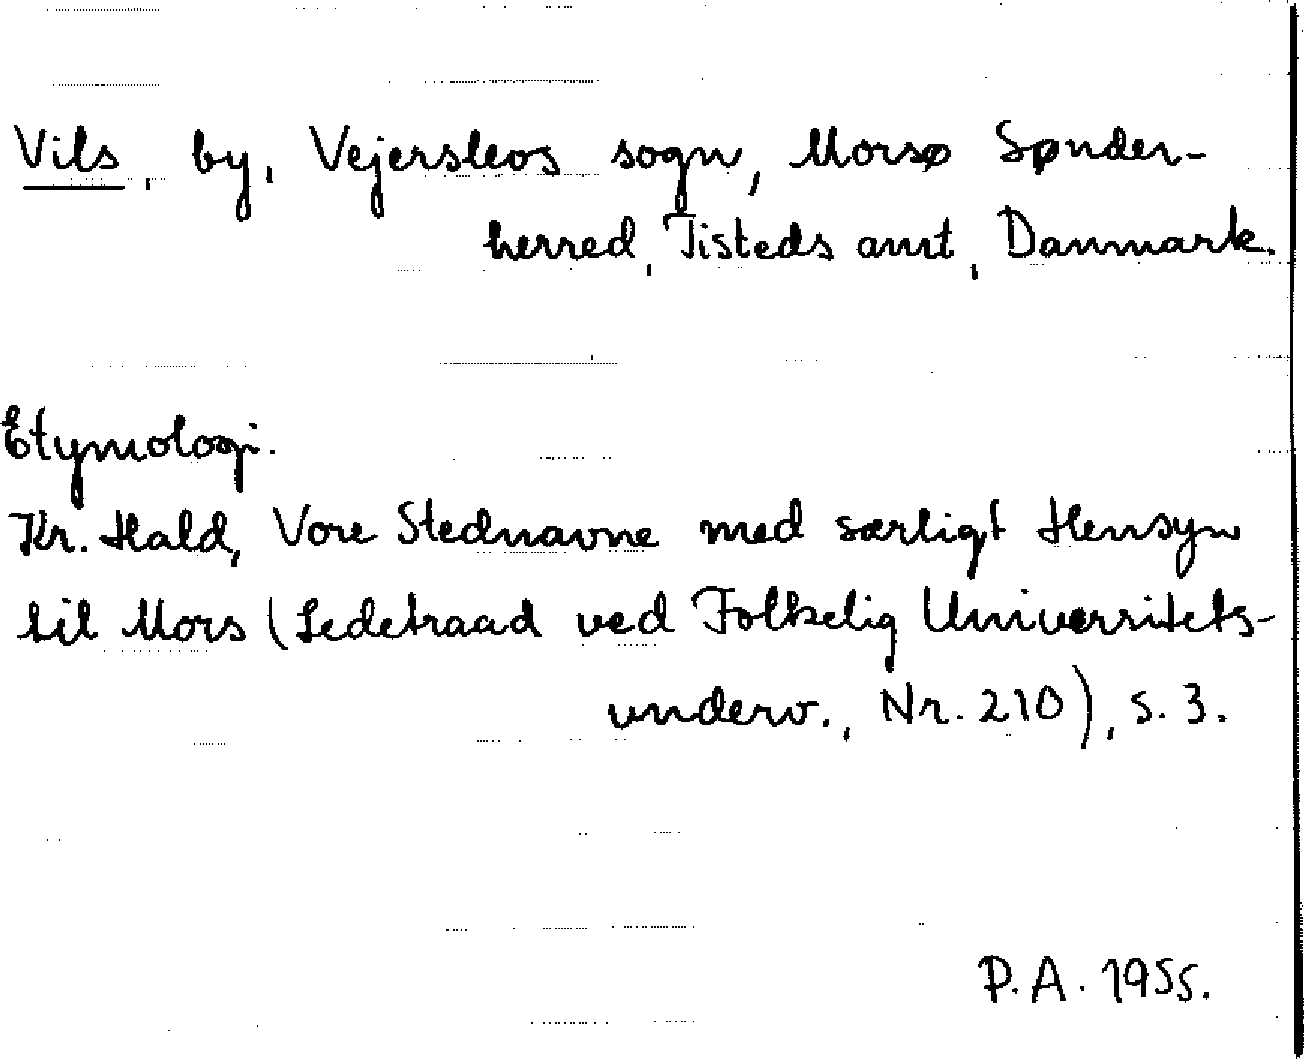 Vils, by, Vejerslevs sogn, Morsø Sønder-
herred, Tisteds amt, Danmark.
Etymologi.
Kr. Hald, Vore Stednavne med særligt Hensyn
til Mors (Ledetraad ved Folkelig Universitets-
underv., Nr. 210), s. 3.
P.A. 1955.